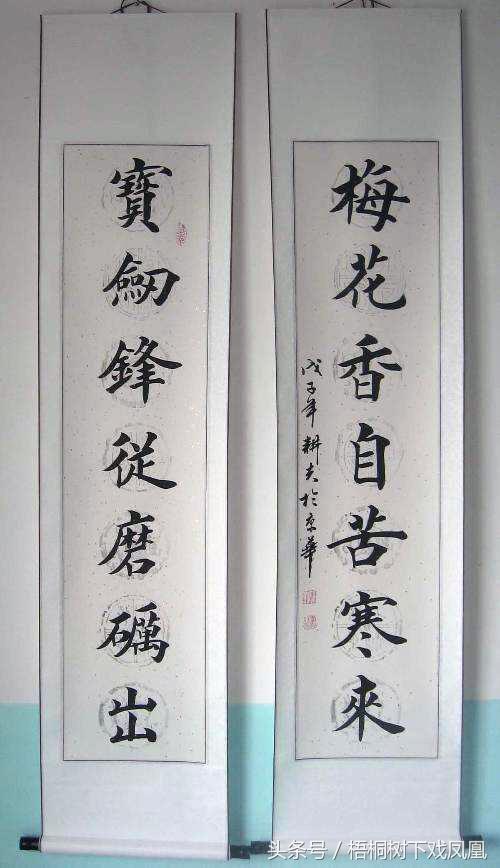 寶劒鋒從磨礪出
梅花香自苦寒來
戊子年耕夫於京華
头条号 / 梧桐树下戏凤凰